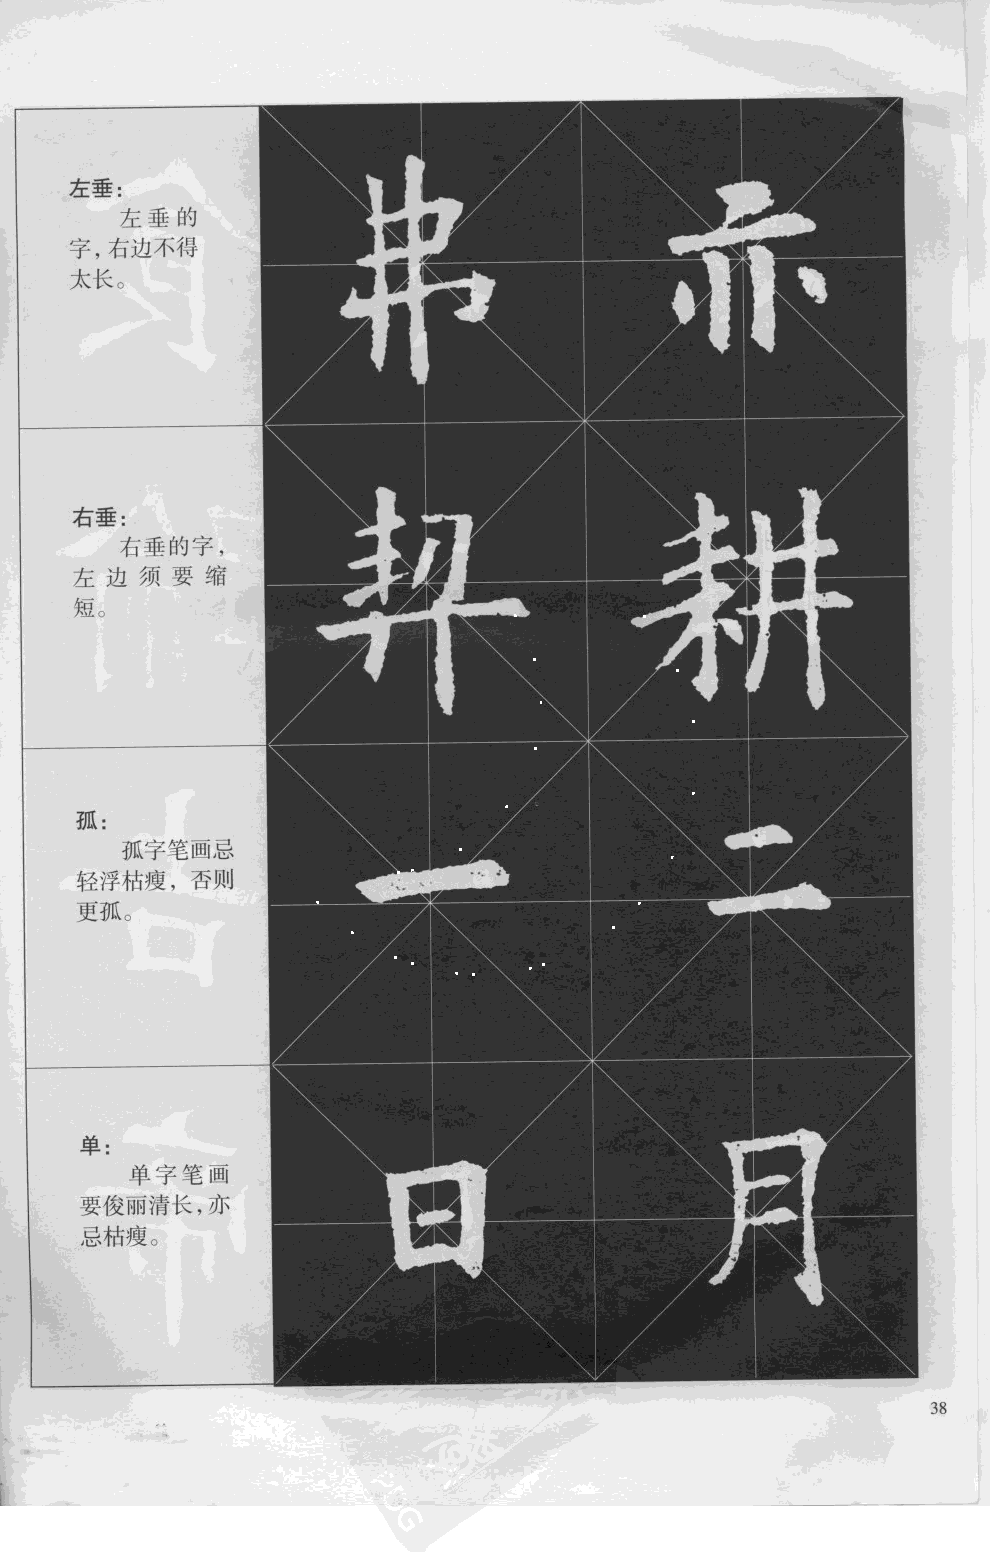 左垂：
左垂的
字，右边不得
太长。
弗 亦
右垂：
右垂的字，
左边须要缩
短。
耕
孤：
孤字笔画忌
轻浮枯瘦，否则
更孤。
一 二
单：
单字笔画
要俊丽清长，亦
忌枯瘦。
日 月
38